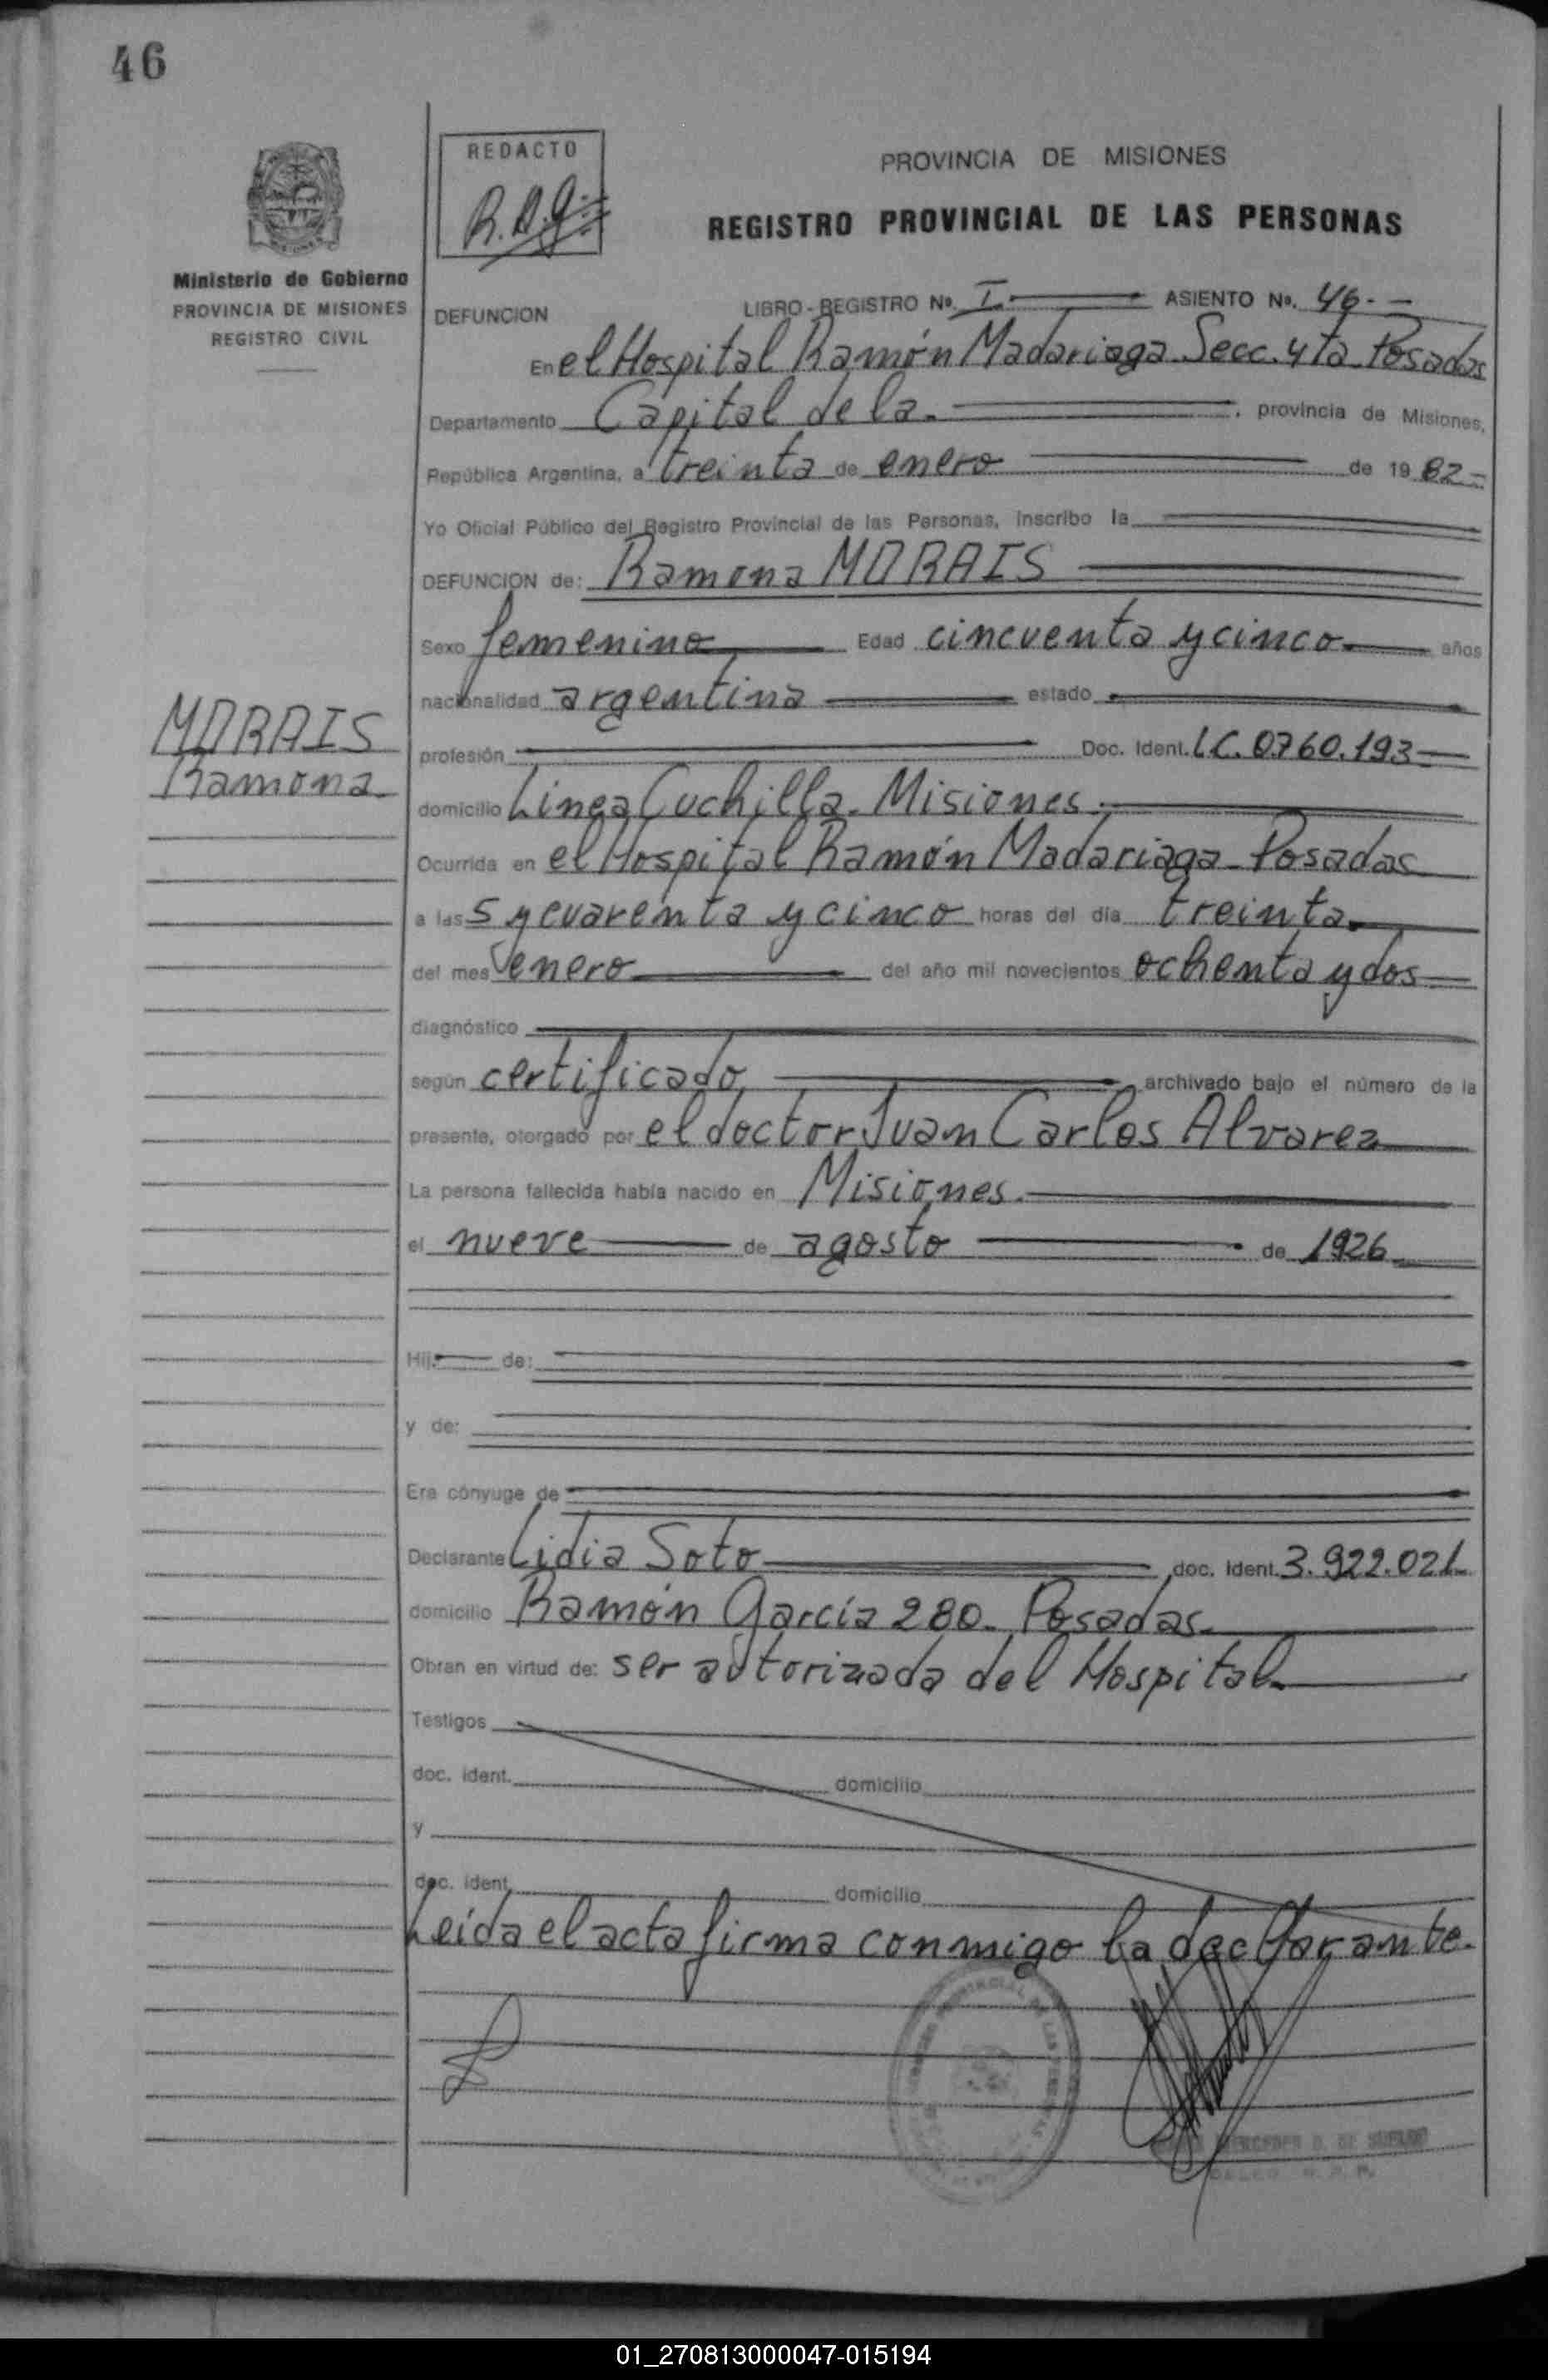 46
REDACTO
R.A.G.
PROVINCIA DE MISIONES
REGISTRO PROVINCIAL DE LAS PERSONAS
Ministerio de Gobierno
PROVINCIA DE MISIONES
REGISTRO CIVIL
DEFUNCION LIBRO-REGISTRO Nº. I ASIENTO Nº. 46.-
En el Hospital Ramón Madariaga Secc. 4ta Posadas
Departamento Capital de la. , provincia de Misiones,
República Argentina, a treinta de enero de 1982-
Yo Oficial Público del Registro Provincial de las Personas, inscribo la
DEFUNCION de: Ramona MORAIS
Sexo femenino Edad cincuenta y cinco años
nacionalidad argentina estado
MORAIS
Ramona
profesión Doc. Ident. L.C. 0.760.193
domicilio Linea Cuchilla. Misiones.
Ocurrida en el Hospital Ramón Madariaga-Posadas
a las 5 y cuarenta y cinco horas del día treinta
del mes enero del año mil novecientos ochenta y dos
diagnóstico
según certificado archivado bajo el número de la
presente, otorgado por el doctor Juan Carlos Alvarez
La persona fallecida había nacido en Misiones.
el nueve de agosto de 1926
Hij de:
y de:
Era cónyuge de
Declarante Lidia Soto doc. ident. 3.922.021
domicilio Ramón García 280. Posadas.
Obran en virtud de: ser autorizada del Hospital.
Testigos
doc. ident. domicilio
y
doc. ident. domicilio
Leída el acta firma conmigo la declarante.
MERCEDES D. DE
01_270813000047-015194